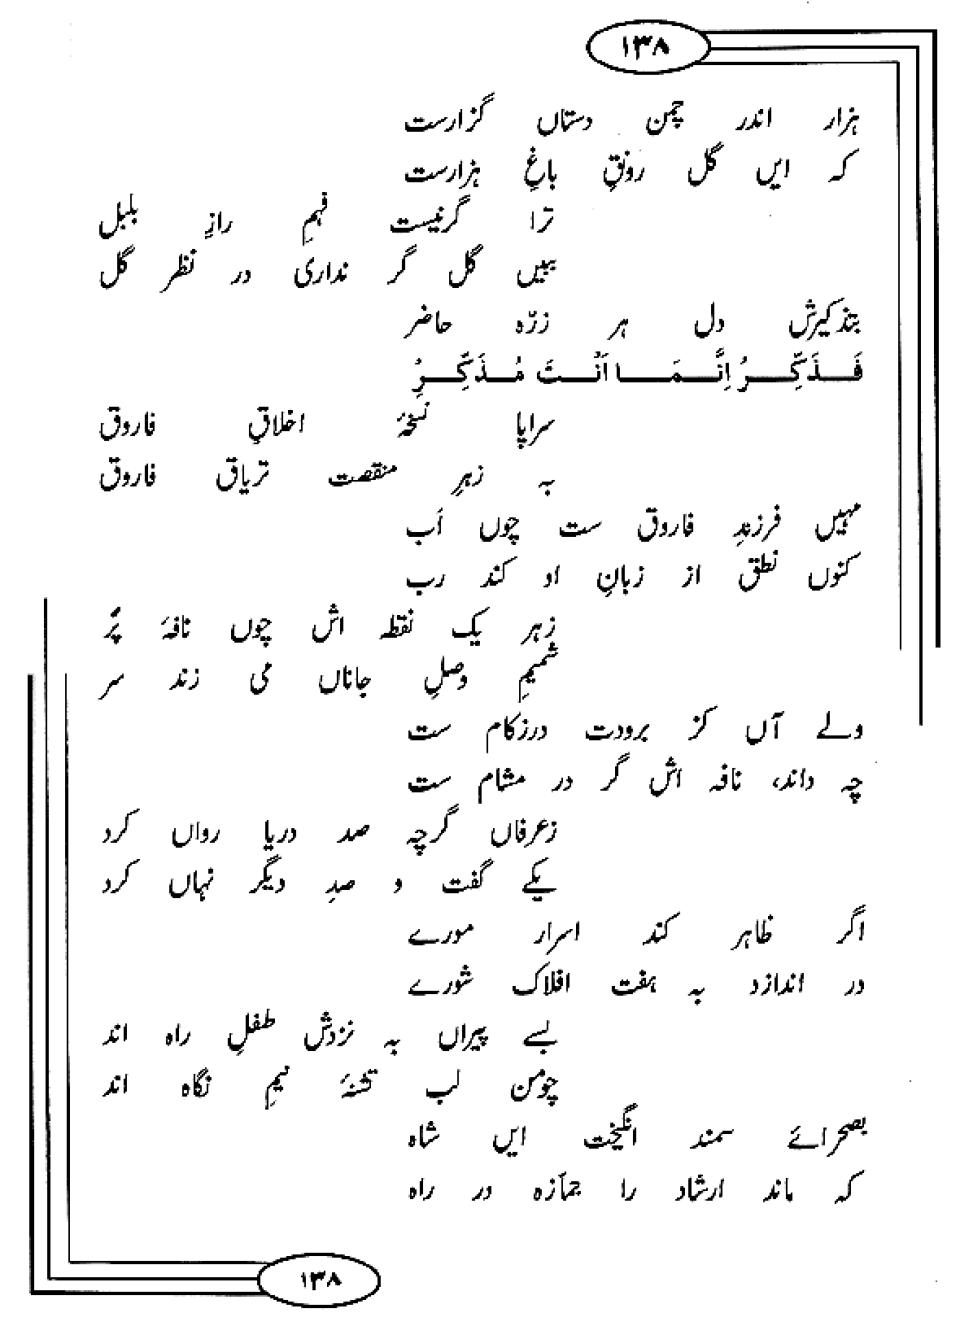 ۱۳۸
ہزار اندر چمن دستاں گزارست
کہ ایں گل رونقِ باغِ ہزارست
ترا گرنیست فہمِ رازِ بلبل
ببیں گل گر نداری در نظر گل
بتذکیرش دل ہر زرّہ حاضر
فَذَكِّرُ اِنَّمَا اَنْتَ مُذَكِّرُ
سراپا نسخۂ اخلاقِ فاروق
بہ زہرِ منقصت تریاق فاروق
مہیں فرزندِ فاروق ست چوں اَب
کنوں نطق از زبانِ او کند رب
زہر یک نقطہ اش چوں نافۂ پُر
شمیمِ وصلِ جاناں می زند سر
ولے آں کز برودت درزکام ست
چہ داند، نافہ اش گر در مشام ست
زعرفاں گرچہ صد دریا رواں کرد
یکے گفت و صدِ دیگر نہاں کرد
اگر ظاہر کند اسرار مورے
در اندازد بہ ہفت افلاک شورے
بسے پیراں بہ نزدش طفلِ راہ اند
چومن لب تشنۂ نیمِ نگاہ اند
بصحرائے سمند انگیخت ایں شاہ
کہ ماند ارشاد را جمّازہ در راہ
۱۳۸